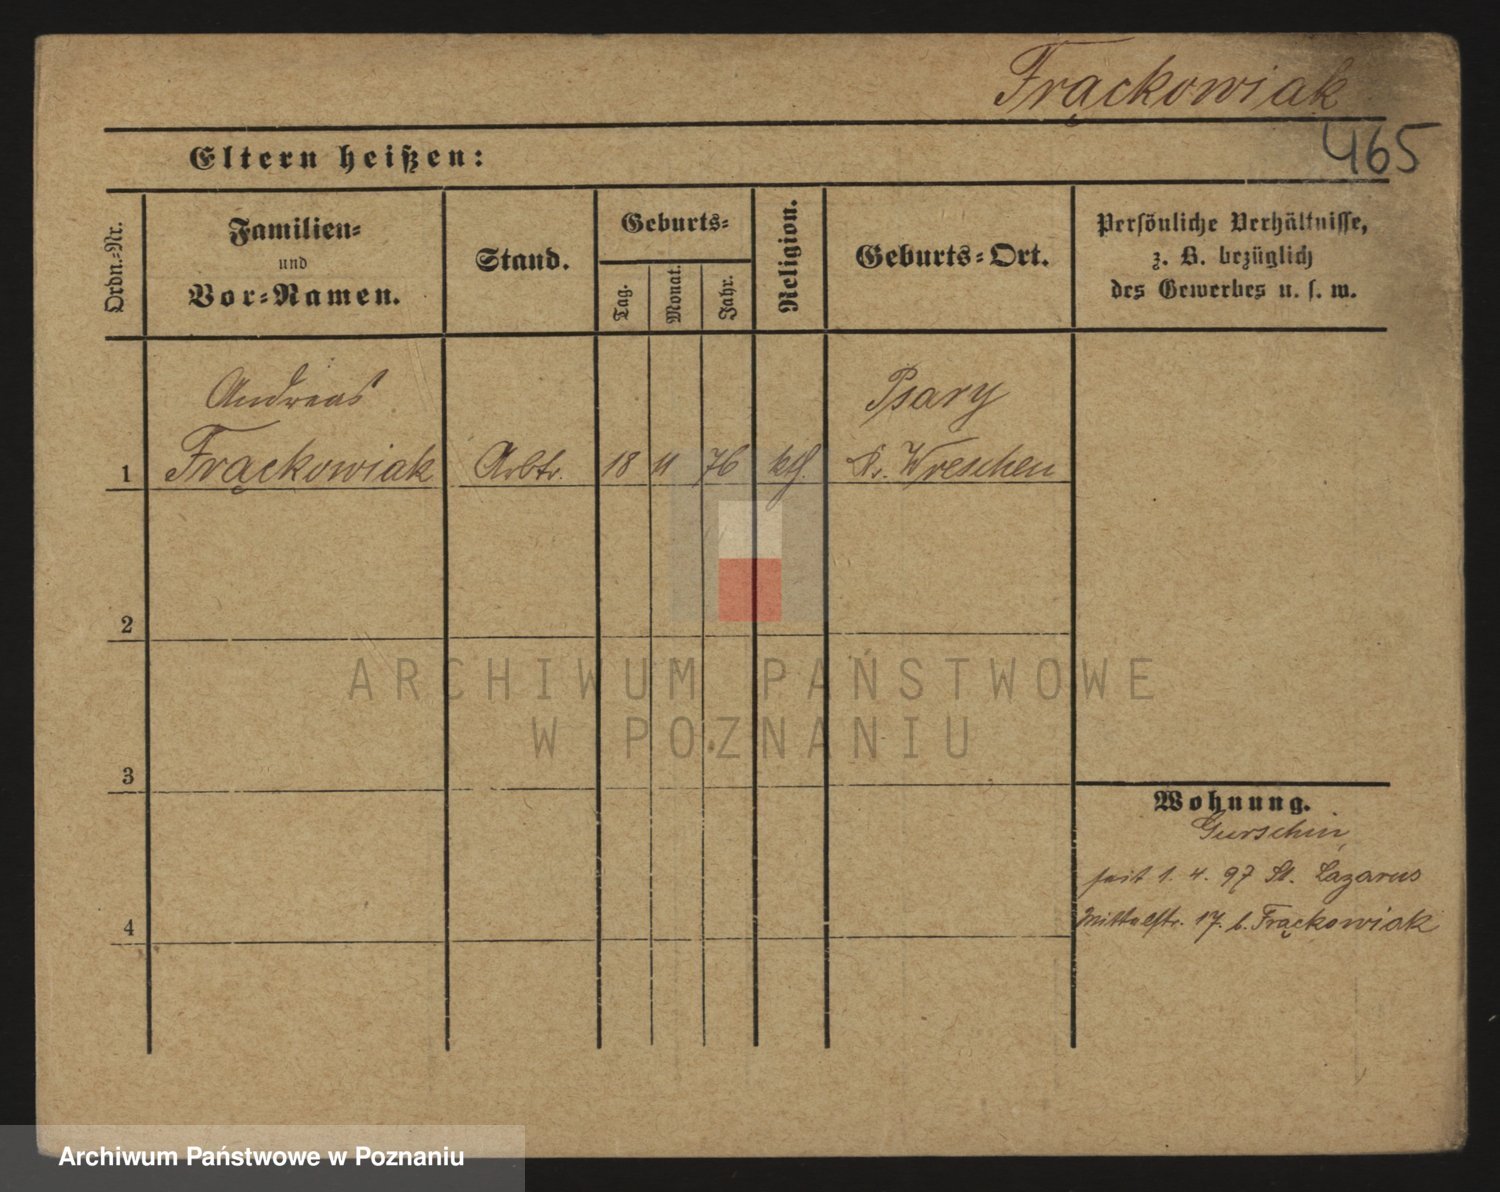 Frąckowiak
465
Eltern heißen:
Ordn.-Nr.
Familien-
und
Vor-Namen.
Stand.
Geburts-
Tag.
Monat.
Jahr.
Religion.
Geburts-Ort.
Persönliche Verhältnisse,
z. B. bezüglich
des Gewerbes u. s. w.
Andreas
Psary
1 Frąckowiak Arbtr. 18 11 76 kth. Kr. Wreschen
2
ARCHIWUM PAŃSTWOWE
W POZNANIU
3
Wohnung.
Gurschin,
seit 1. 4. 97 St. Lazarus
4 Mittelstr. 17. b. Frąckowiak
Archiwum Państwowe w Poznaniu